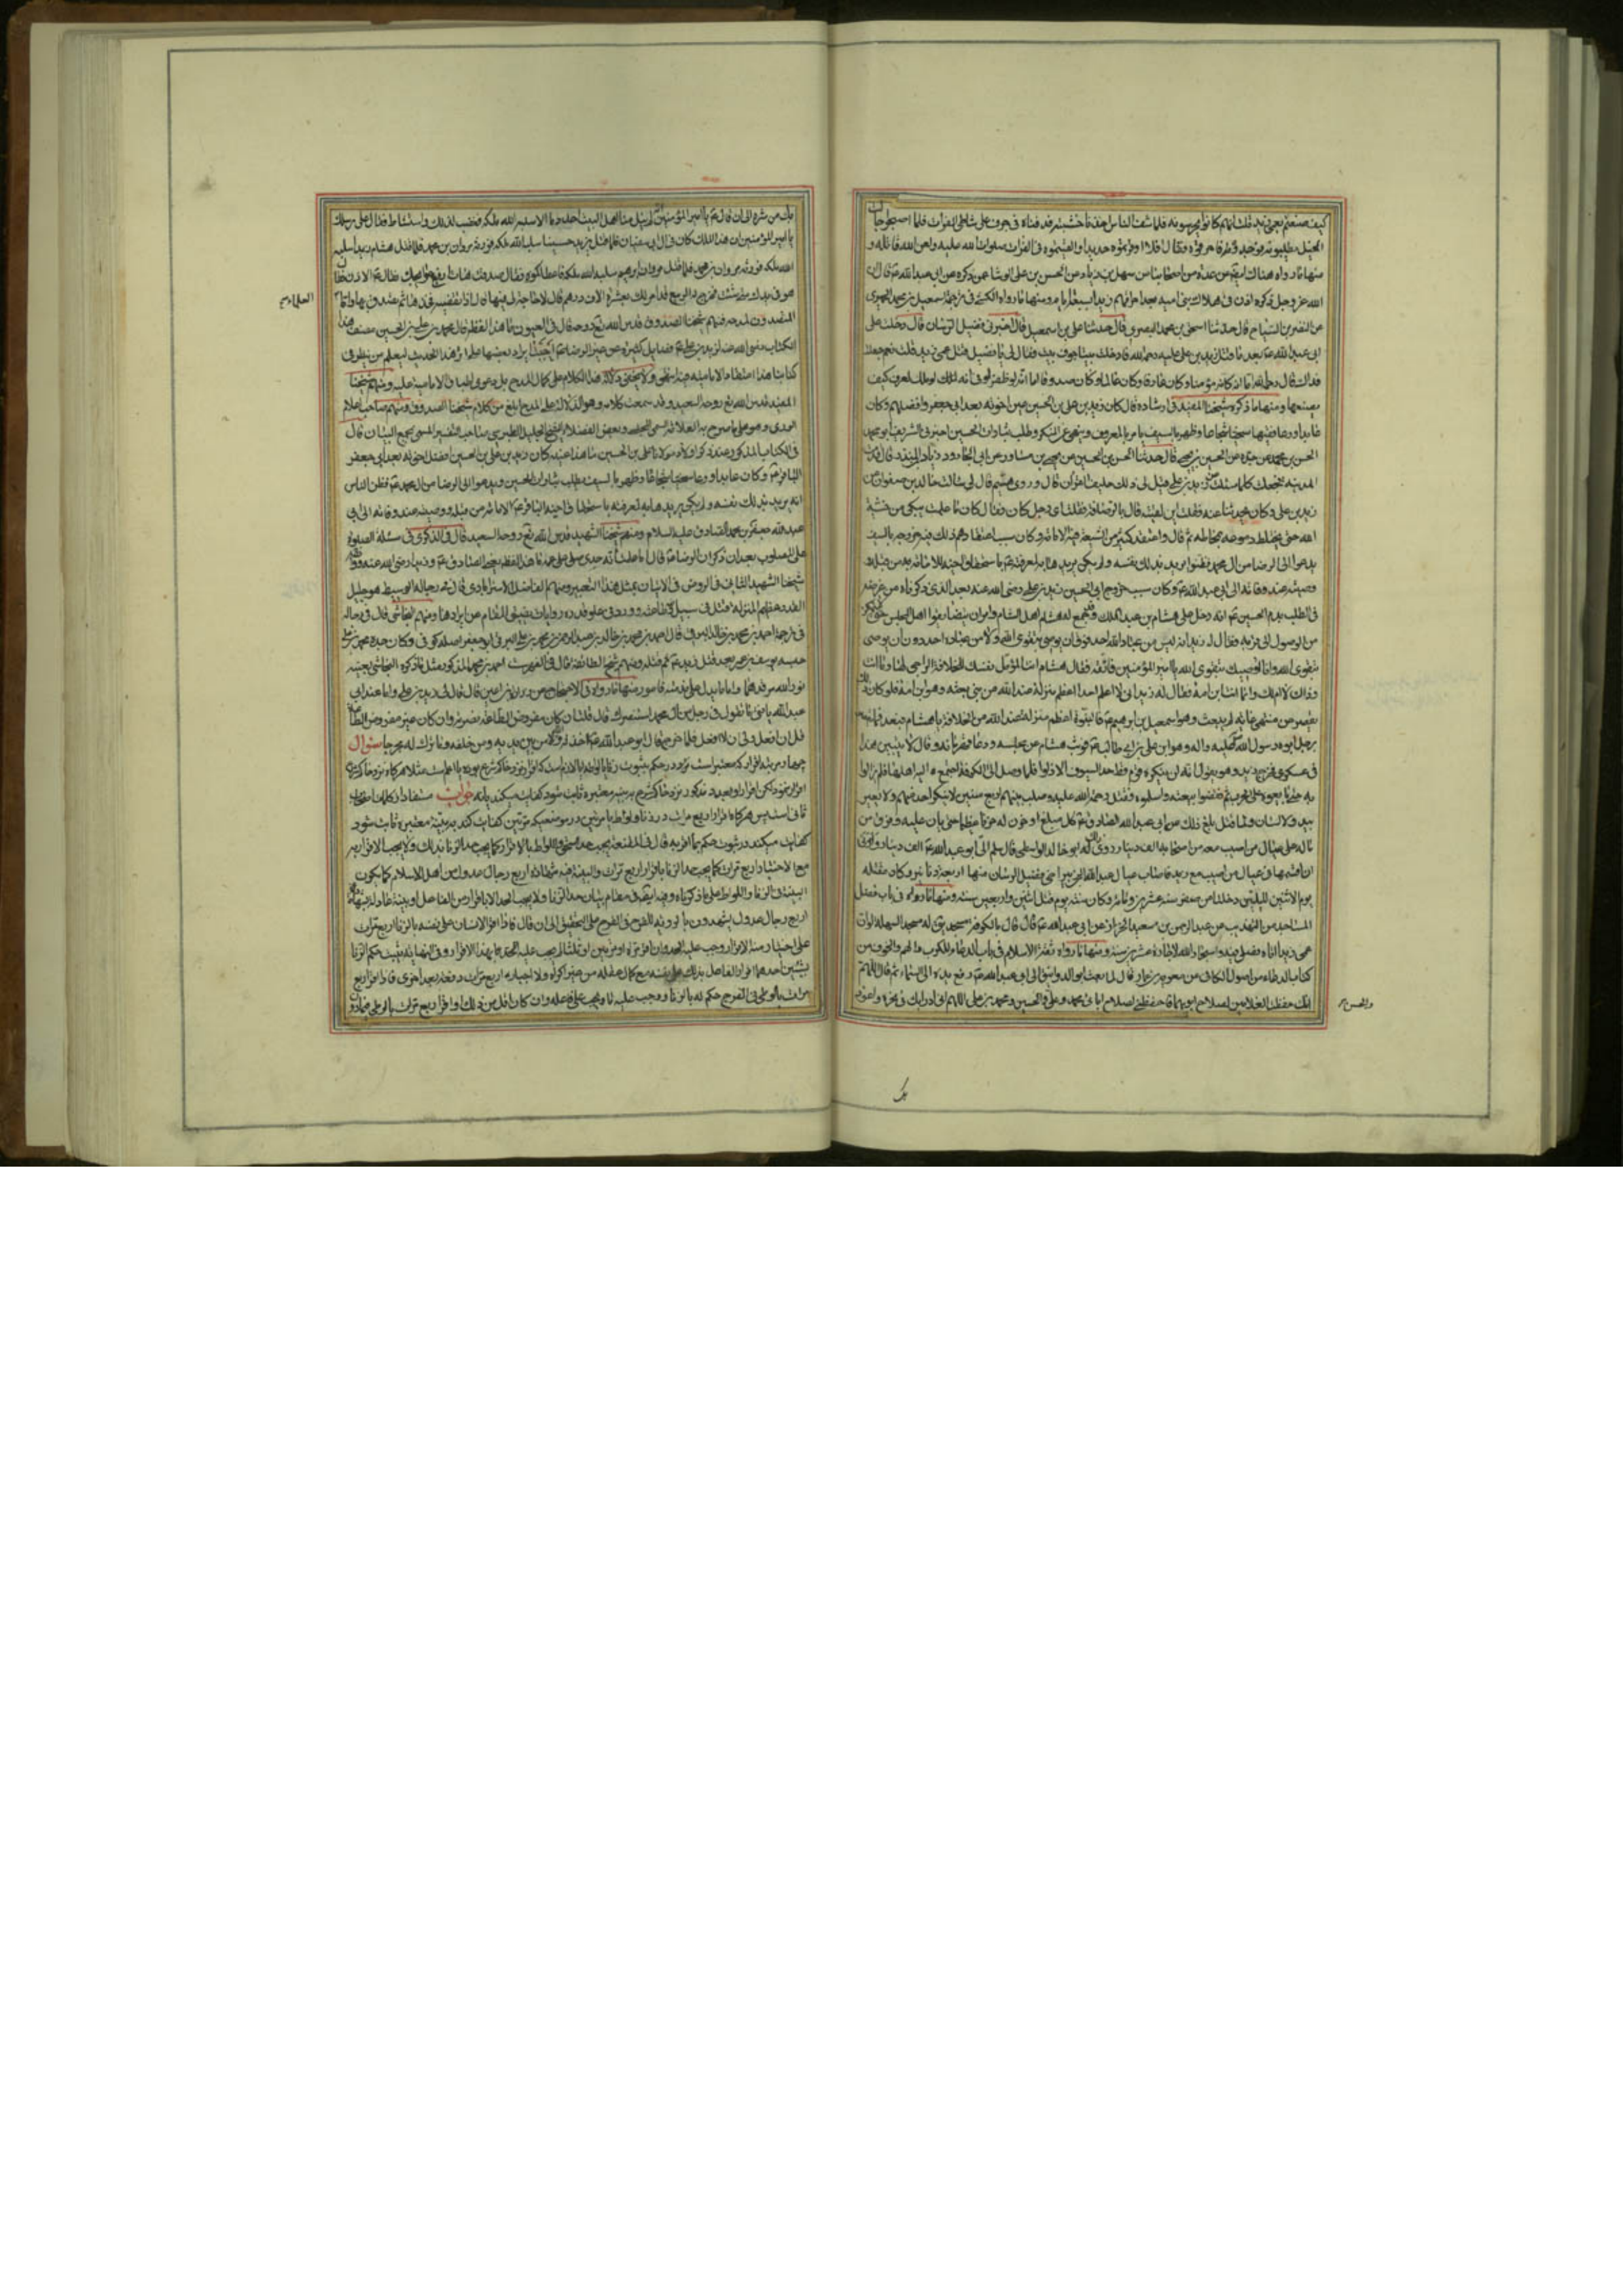 كيف صنعتم بعمي زيد قلت انهم كانوا يحرسونه فلما شف الناس اخذنا خشبته فدفناه في جرف على شاطئ الفرات فلما اصبحوا جالت
الخيل يطلبونه فوجدوه فاحرقوه فقال افلا اوقرتموه حديدا والقيتموه في الفرات صلوات الله عليه ولعن الله قاتله و
منها ما رواه هناك عن عدة من اصحابنا من سهل بن زياد عن الحسن بن علي الوشا عمن ذكره عن ابي عبد الله ع قال ان
الله عز وجل ذكره اذن في هلاك بني امية بعد احراقهم زيدا بسبعة ايام ومنها ما رواه الكشي في ترجمة اسمعيل بن محمد الحميري
عن النضر بن الصباح قال حدثنا اسحق بن محمد البصري قال حدثنا علي بن اسمعيل قال اخبرني فضيل الرسان قال دخلت على
ابي عبد الله ع بعد ما قتل زيد بن علي عليه رحمة الله فادخلت بيتا جوف بيت فقال لي يا فضيل قتل عمي زيد قلت نعم جعلت
فداك قال رحمه الله اما انه كان مؤمنا وكان عارفا وكان عالما وكان صدوقا اما انه لو ظفر لوفى اما انه لو ملك لعرف كيف
يضعها ومنها ما ذكره شيخنا المفيد في ارشاده قال كان زيد بن علي بن الحسين عين اخوته بعد ابي جعفر وافضلهم وكان
عابدا ورعا فقيها سخيا شجاعا وظهر بالسيف يامر بالمعروف وينهى عن المنكر ويطلب بثارات الحسين اخبرني الشريف ابو محمد
الحسن بن محمد عن جده عن الحسين بن يحيى قال حدثنا الحسن بن الحسين عن يحيى بن مساور عن ابي الجارود زياد بن المنذر قال قدمت
المدينة فجعلت كلما سئلت عن زيد بن علي قيل لي ذلك حليف القرآن قال وروى هشيم قال لي سالت خالد بن صفوان عن
زيد بن علي وكان يحدثنا عنه فقلت اين لقيته قال بالرصافة فقلت اي رجل كان فقال كان ما علمت يبكي من خشية
الله حتى يختلط دموعه بمخاطه ثم قال واعتقد كثير من الشيعة فيه الامامة وكان سبب اعتقادهم ذلك فيه خروجه بالسيف
يدعو الى الرضا من آل محمد فظنوه يريد بذلك نفسه ولم يكن يريدها به لمعرفته ع باستحقاق اخيه للامامة من قبله و
وصيته عند وفاته الى ابي عبد الله ع وكان سبب خروج ابي الحسين زيد بن علي رضي الله عنه بعد الذي ذكرناه من غرضه
في الطلب بدم الحسين ع انه دخل على هشام بن عبد الملك وقد جمع له هشام اهل الشام وامر ان يتضايقوا اهل المجلس حتى لا يتمكن
من الوصول الى قربه فقال له زيد انه ليس من عباد الله احد فوق ان يوصى بتقوى الله ولا من عباده احد دون ان يوصي
بتقوى الله وانا اوصيك بتقوى الله يا امير المؤمنين فاتقه فقال هشام انت المؤهل نفسك للخلافة الراجي لها وما انت
وذاك لا ام لك وانما انت ابن امة فقال له زيد اني لا اعلم احدا اعظم منزلة عند الله من نبي بعثه وهو ابن امة فلو كان ذلك
يقصر عن منتهى غاية لم يبعث وهو اسمعيل بن ابرهيم ع فالنبوة اعظم منزلة عند الله من الخلافة يا هشام وبعد فما يقصر
برجل ابوه رسول الله صلى الله عليه واله وهو ابن علي بن ابي طالب ع فوثب هشام من مجلسه ودعا قهرمانه وقال لا يبيتن هذا
في عسكري فخرج زيد وهو يقول انه لن يكره قوم قط حد السيوف الا ذلوا فلما وصل الى الكوفة اجتمع اليه اهلها فلم يزالوا
به حتى بايعوه على الحرب ثم نقضوا بيعته واسلموه فقتل رحمة الله عليه وصلب بينهم اربع سنين لا ينكر احد منهم ولا يغير
بيد ولا لسان ولما قتل بلغ ذلك من ابي عبد الله الصادق ع كل مبلغ وحزن له حزنا عظيما حتى بان عليه وفرق من
ماله على عيال من اصيب معه من اصحابه الف دينار روى ذلك ابو خالد الواسطي قال سلم الي ابو عبد الله ع الف دينار وامرني
ان اقسمها في عيال من اصيب مع زيد فاصاب عيال عبد الله بن الزبير اخي فضيل الرسان منها اربعة دنانير وكان مقتله
يوم الاثنين لليلتين خلتا من صفر سنة عشرين ومائة وكان سنه يوم قتل اثنين واربعين سنة ومنها ما رواه في باب فضل
المساجد من التهذيب عن عبد الرحمن بن سعيد الخزاز عن ابي عبد الله ع قال قال بالكوفة مسجد يقال له مسجد السهلة لو ان
عمي زيد اتاه فصلى فيه واستجار الله لاجاره عشرين سنة ومنها ما رواه ثقة الاسلام في باب الدعاء للكرب والهم والخوف من
كتاب الدعاء من اصول الكافي عن معوية بن عمار قال لما بعث ابو الدوانيق الى ابي عبد الله ع رفع يده الى السماء ثم قال اللهم
انك حفظت الغلامين لصلاح ابويهما فاحفظني لصلاح ابائي محمد وعلي والحسين ومحمد بن علي اللهم اني ادرأ بك في نحره واعوذ
والحسن
بك
بك من شره الى ان قال ع يا امير المؤمنين لم ينل منا اهل البيت احد دما الا سلبه الله ملكه فغضب لذلك واستشاط فقال على رسلك
يا امير المؤمنين ان هذا الملك كان في ال ابي سفيان فلما قتل يزيد حسينا سلبه الله ملكه فورثه مروان بن محمد فلما قتل هشام زيدا سلبه
الله ملكه فورثه مروان بن محمد فلما قتل مروان ابرهيم سلبه الله ملكه فاعطاكموه فقال صدقت هات ارفع حوائجك فقال ع الاذن فقال
هو في يدك متى شئت فخرج فقال له الربيع قد امر لك بعشرة الاف درهم قال لا حاجة لي فيها قال اذا تغضبه فخذها ثم تصدق بها واما
العلماء
المتصدون لمدحه فمنهم شيخنا الصدوق قدس الله روحه قال في العيون ما هذا لفظه قال محمد بن علي بن الحسين مصنف هذا
الكتاب رضي الله عنه لزيد بن علي ع فضايل كثيرة عن غير الرضا ع احببت ايراد بعضها على اثر هذا الحديث ليعلم من ينظر في
كتابنا هذا اعتقاد الامامية فيه انتهى ولا يخفى دلالة هذا الكلام على كمال المدح بل دعوى اطباق الامامية عليه ومنهم شيخنا
المفيد قدس الله روحه السعيد وقد سمعت كلامه وهو الدلالة على المدح ابلغ من كلام شيخنا الصدوق ومنهم صاحب اعلام
الورى وهو على ما صرح به العلامة السمي المجلسي وبعض الفضلاء الشيخ الجليل الطبرسي صاحب التفسير المسمى بمجمع البيان قال
في الكتاب المذكور عند ذكر اولاد مولانا علي بن الحسين ما هذا عينه كان زيد بن علي بن الحسين افضل اخوته بعد ابي جعفر
الباقر ع وكان عابدا ورعا سخيا شجاعا وظهر بالسيف يطلب بثارات الحسين ويدعو الى الرضا من ال محمد ع فظن الناس
انه يريد بذلك نفسه ولم يكن يريدها به لمعرفته باستحقاق اخيه الباقر ع الامامة من قبله ووصيته عند وفاته الى ابي
عبد الله جعفر بن محمد الصادق عليه السلام ومنهم شيخنا الشهيد قدس الله روحه السعيد قال في الذكرى في مسئلة الصلوة
على المصلوب بعد ان ذكر ان الرضا ع قال اما علمت ان جدي صلى على عمه ما هذا لفظه يعني الصادق ع وزيد رضي الله عنه
شيخنا الشهيد الثاني في الروض في الاتيان بمثل هذا التعبير ومنهم الفاضل الاسترابادي قال في رجاله الوسيط هو جليل
القدر عظيم المنزلة قتل في سبيل الله وطاعته وورد في علو قدره روايات يضيق المقام عن ايرادها ومنهم النجاشي قال في رجاله
في ترجمة احمد بن محمد بن خالد البرقي قال احمد بن محمد بن خالد بن عبد الرحمن بن محمد بن علي البرقي ابو جعفر اصله كوفي وكان جده محمد بن علي
حبسه يوسف بن عمر بعد قتل زيد ع ثم قتله ومنهم شيخ الطائفة قال في الفهرست احمد بن محمد المذكور مثل ما ذكره النجاشي بعينه
نور الله مرقدهما واما ما يدل على ذمه فامور منها ما رواه في الاحتجاج عن زرارة بن اعين قال قال لي زيد بن علي وانا عند ابي
عبد الله يا فتى ما تقول في رجل من آل محمد استنصرك قال قلت ان كان مفروض الطاعة نصرته وان كان غير مفروض الطاعة
فلي ان افعل ولي ان لا افعل فلما خرج قال ابو عبد الله ع اخذته والله من بين يديه ومن خلفه وما تركت له مخرجا سؤال
چهار مرتبه اقرار كه معتبر است در حكم بثبوت زنا يا لواط ايا لازم است كه اقرار نزد حاكم شرع بوده باشد مثلا هرگاه نزد حاكم شرع
اقرار نمود لكن اقرار او بعدد مذكور نزد حاكم شرع ببينه معتبره ثابت شود كفايت ميكند يا نه جواب مستفاد از كلمات اصحاب
ثاني است پس هرگاه اقرار اربع مرات در زنا و لواط يا مرتين در موضعيكه مرتين كفايت كند ببينه معتبره ثابت شود
كفايت ميكند در ثبوت حكم بما اقر به قال في المقنعة يجب حد السحق واللواط بالاقرار كما يجب حد الزنا بذلك ولا يجب الاقرار به
مع الاختيار اربع مرات كما يجب حد الزنا باقرار اربع مرات والبينة فيه شهادة اربع رجال عدول من اهل الاسلام كما يكون
البينة في الزنا واللواط على ما ذكرناه وفيه ايضا في مقام بيان حد الزنا ولا يجب الحد الا باقرار من الفاعل او بينة عادلة بشهادة
اربع رجال عدول يشهدون بالرؤية للفرج في الفرج على التحقيق الى ان قال فاذا اقر الانسان على نفسه بالزنا اربع مرات
على اختيار منه الاقرار وجب عليه الحد وان اقر مرة او مرتين او ثلثا لم يجب عليه الحد بهذا الاقرار وفي النهاية يثبت حكم الزنا
بشيئين احدهما اقرار الفاعل بذلك على نفسه مع كمال عقله من غير اكراه ولا اجبار اربع مرات دفعة بعد اخرى فاذا اقر اربع
مرات بالوطي في الفرج حكم له بالزنا ووجب عليه ما يجب على فاعله وان كان اقل من ذلك او اقر اربع مرات بالوطي فيما دون